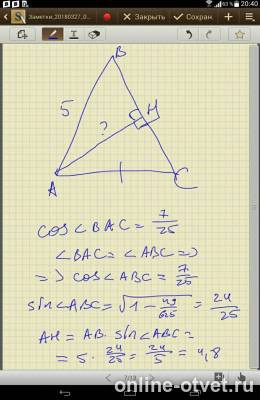 20:40
Заметки_20180327_0...
Закрыть
Сохран
B
5
H
?
A
C
cos∠BAC = 7/25
∠BAC = ∠ABC =>
=> cos∠ABC = 7/25
sin∠ABC = √1 - 49/625 = 24/25
AH = AB · sin∠ABC =
= 5 · 24/25 = 24/5 = 4,8
online-otvet.ru